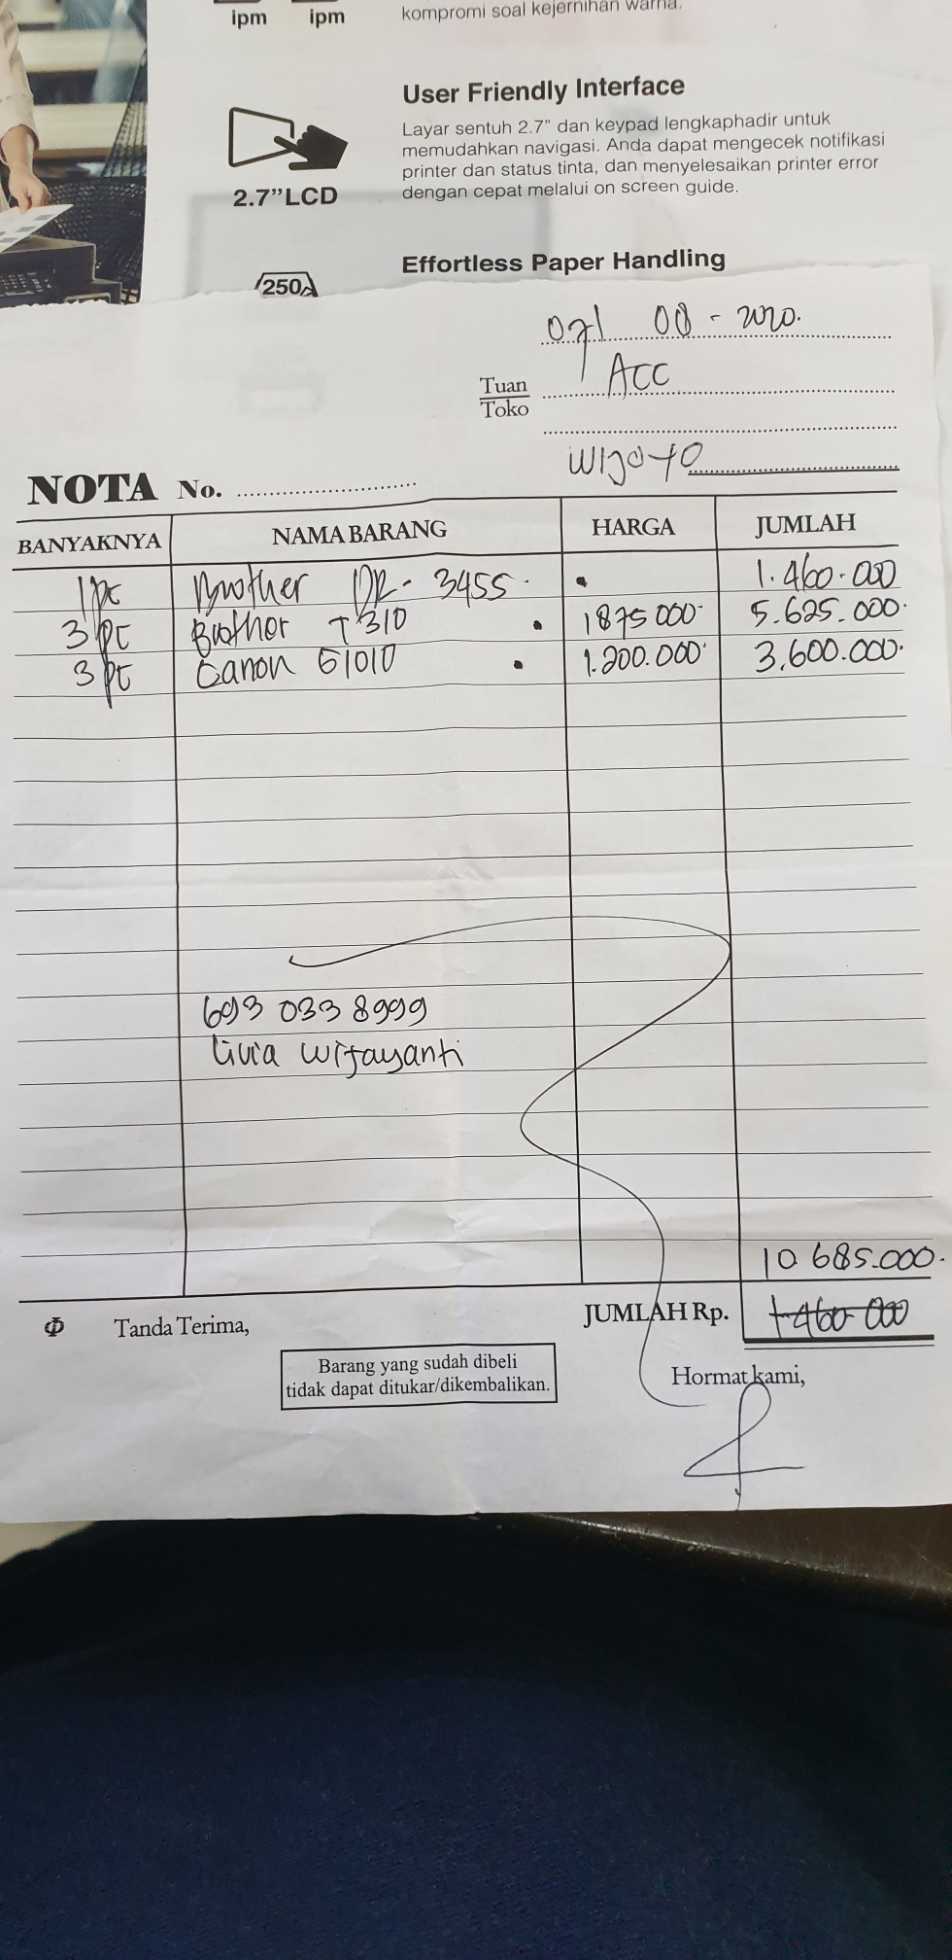 ipm ipm
kompromi soal kejernihan warna.
User Friendly Interface
Layar sentuh 2.7" dan keypad lengkaphadir untuk
memudahkan navigasi. Anda dapat mengecek notifikasi
printer dan status tinta, dan menyelesaikan printer error
dengan cepat melalui on screen guide.
2.7"LCD
Effortless Paper Handling
250
08 - 2020.
Tuan
Toko
ACC
Wijoyo
NOTA No.
BANYAKNYA NAMA BARANG HARGA JUMLAH
1 pc Brother DR - 3455 1.460.000
3 pc Brother T 310 1875 000 5.625.000
3 pc Canon G1010 1.200.000 3,600.000
693 033 8999
Livia Wijayanti
10.685.000
JUMLAH Rp. 1.460.000
Tanda Terima,
Barang yang sudah dibeli
tidak dapat ditukar/dikembalikan.
Hormat kami,